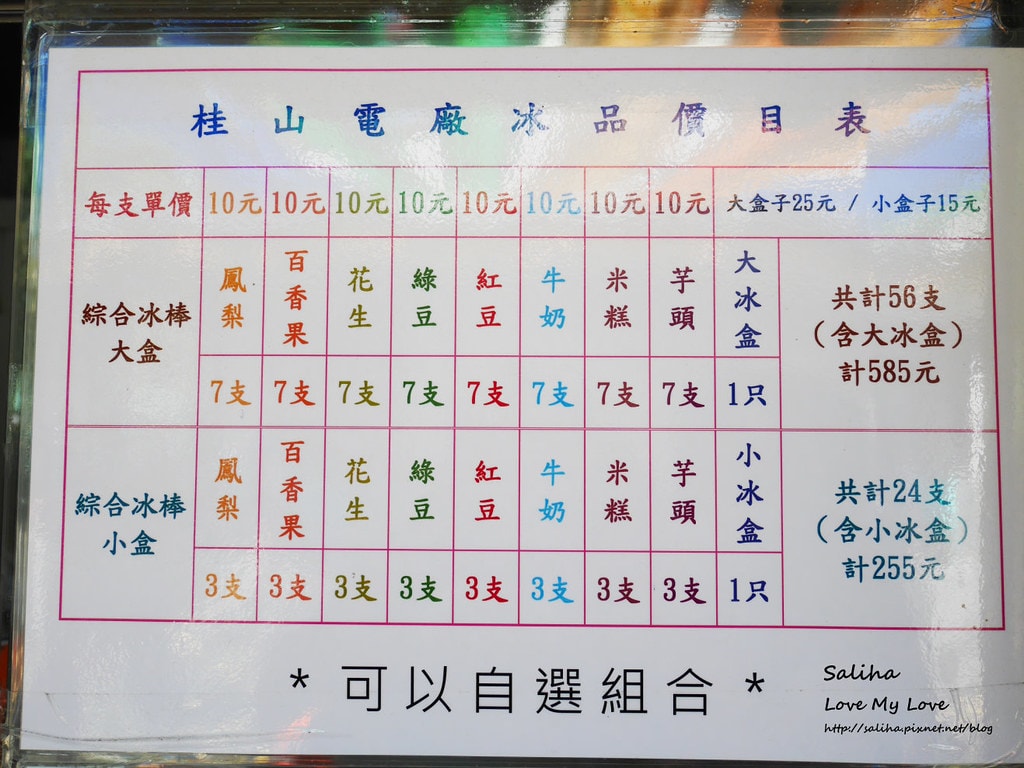 桂山電廠冰品價目表
每支單價 10元 10元 10元 10元 10元 10元 10元 10元 大盒子25元 / 小盒子15元
綜合冰棒大盒 鳳梨 百香果 花生 綠豆 紅豆 牛奶 米糕 芋頭 大冰盒 共計56支(含大冰盒)計585元
7支 7支 7支 7支 7支 7支 7支 7支 1只
綜合冰棒小盒 鳳梨 百香果 花生 綠豆 紅豆 牛奶 米糕 芋頭 小冰盒 共計24支(含小冰盒)計255元
3支 3支 3支 3支 3支 3支 3支 3支 1只
* 可以自選組合 *
Saliha
Love My Love
http://saliha.pixnet.net/blog